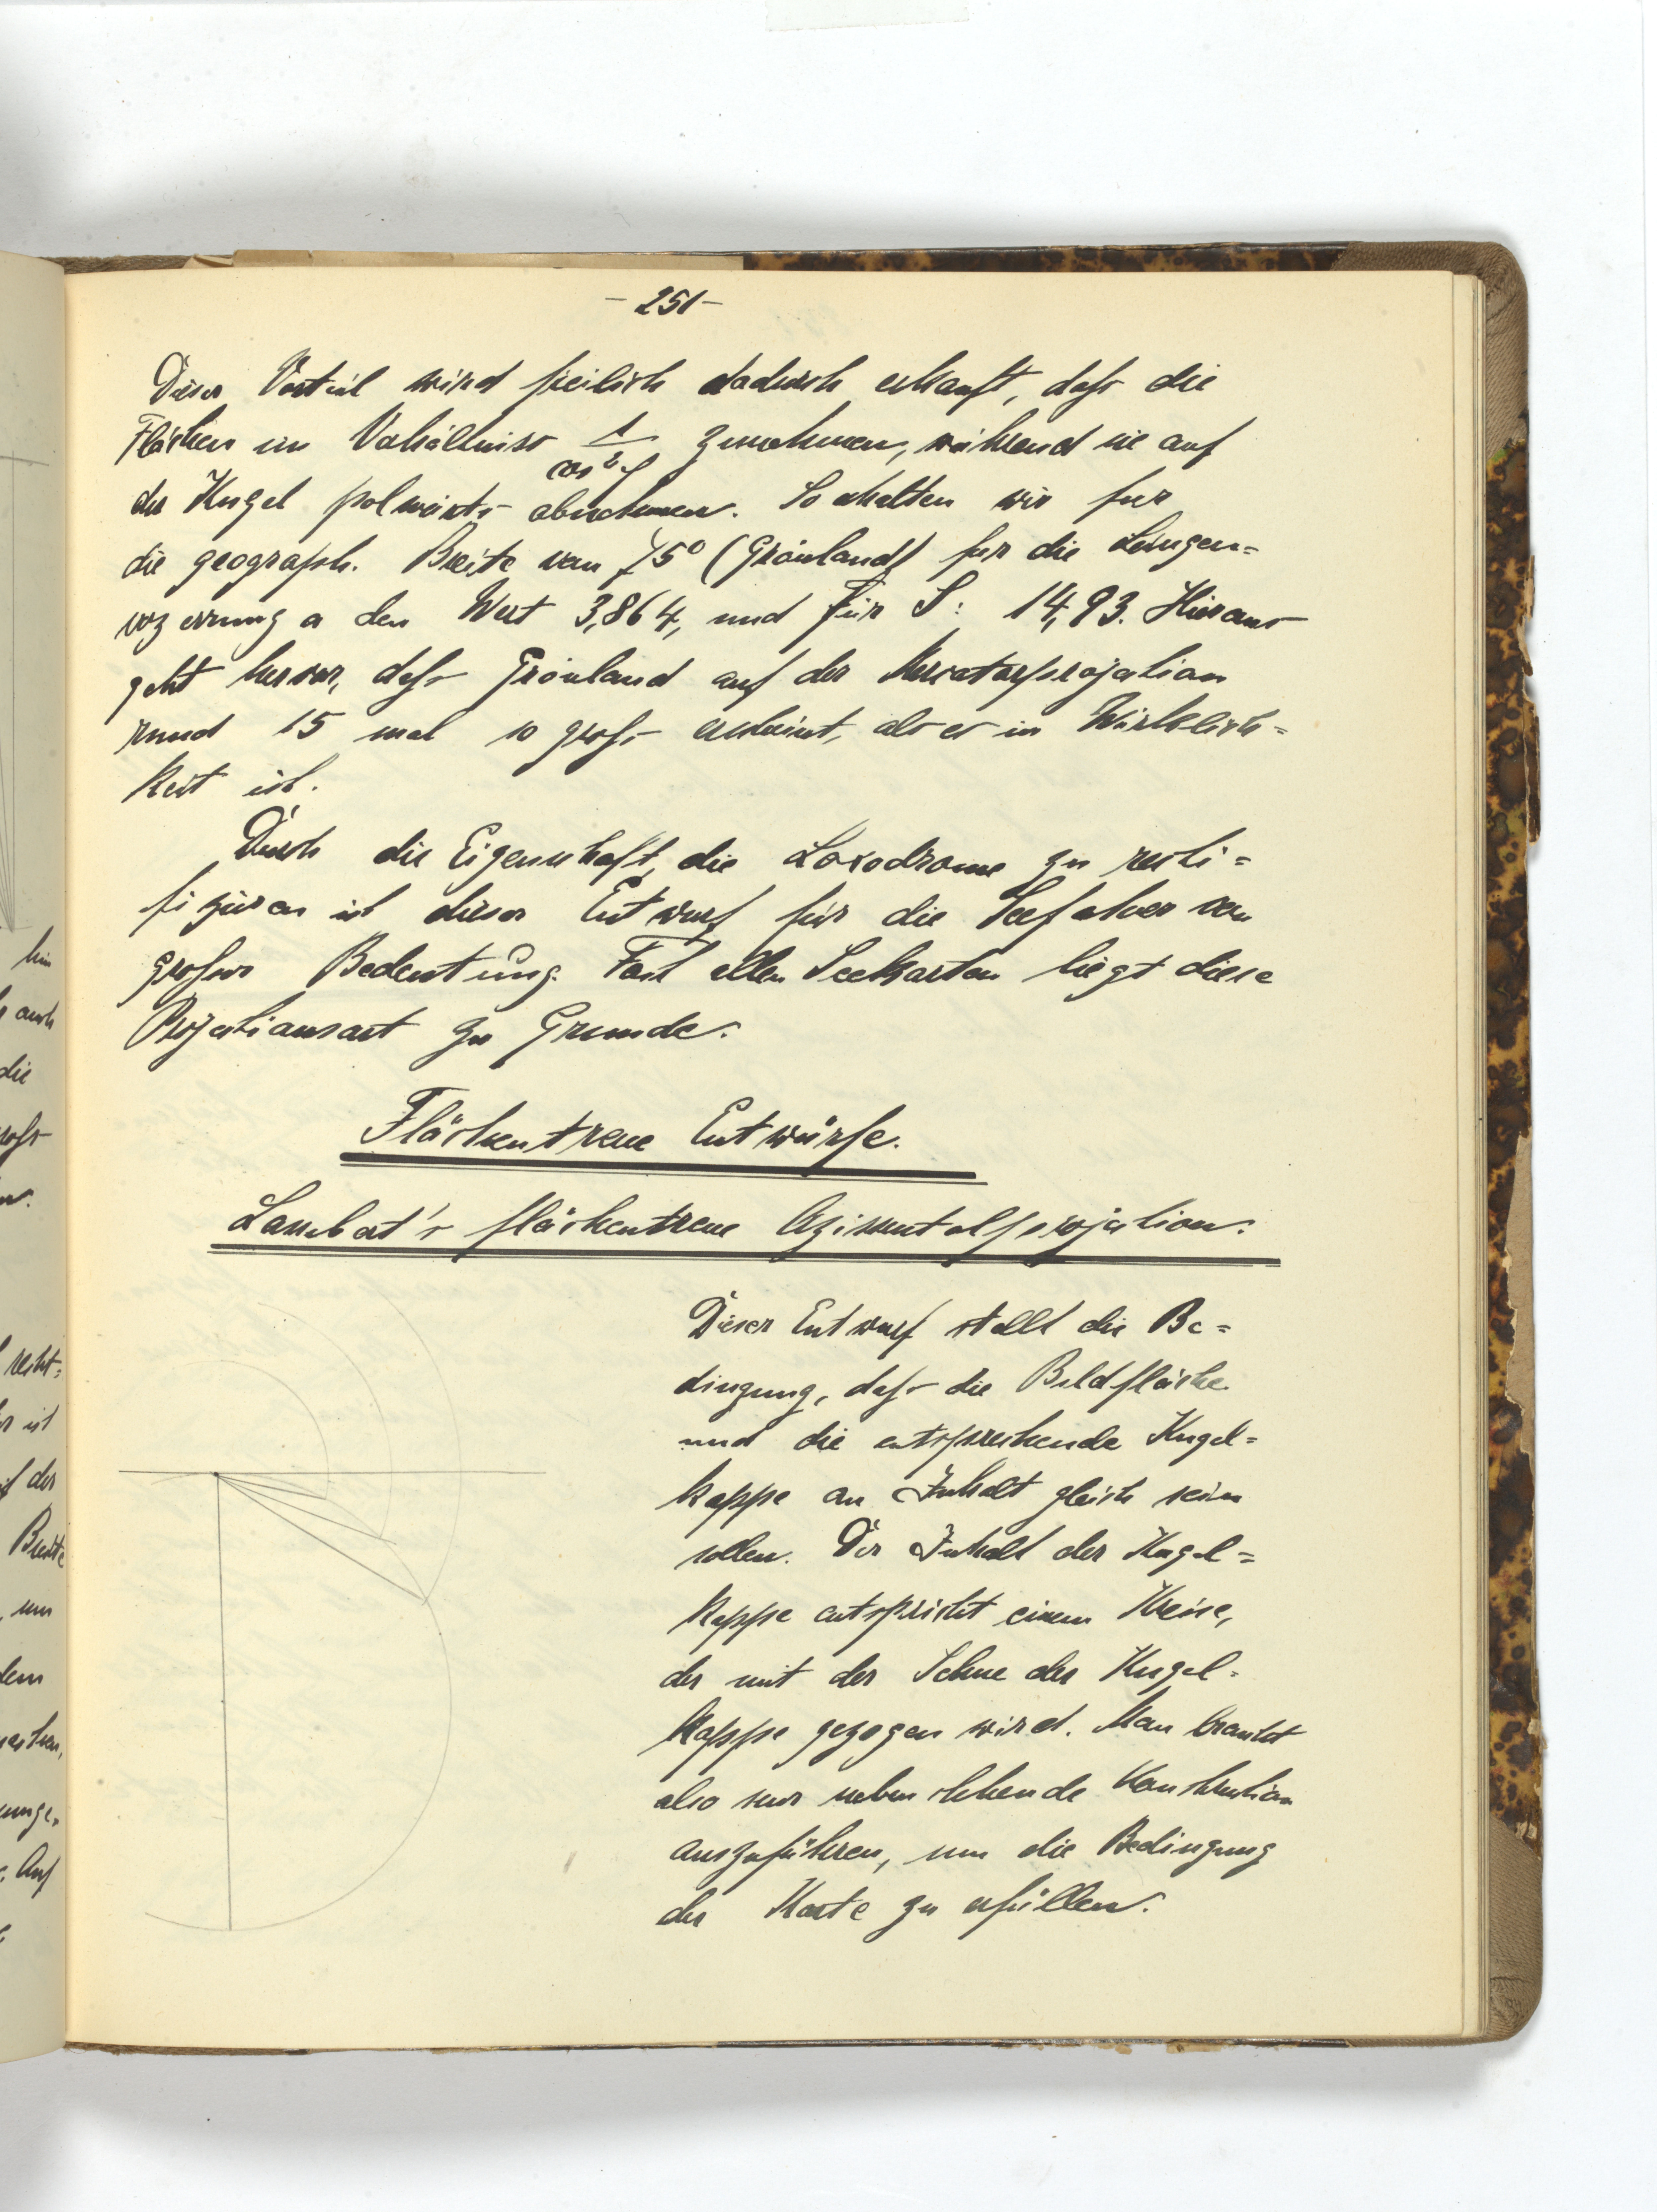 - 251 -
Dieser Vorteil wird freilich dadurch erkauft, dass die
Flächen im Verhältniss 1/cos²φ zunehmen, während sie auf
der Kugel polwärts abnehmen. So erhalten wir fur
die geograph. Breite von 75° (Grönland) fur die Längen=
verzerrung a den Wert 3,864, und für S: 14,93. Hieraus
geht hervor, dass Grönland auf der Mercatorprojektion
rund 15 mal so gross erscheint, als es in Wirklich=
keit ist.
Durch die Eigenschaft, die Loxodrome zu recti=
fizieren ist dieser Entwurf für die Seefahrer von
grosser Bedeutung. Fast allen Seekarten liegt diese
Projektionsart zu Grunde.
Flächentreue Entwürfe.
Lambert's flächentreue Azimutalprojektion.
Dieser Entwurf stellt die Be=
dingung, dass die Bildfläche
und die entsprechende Kugel=
kappe an Inhalt gleich sein
sollen. Der Inhalt der Kugel=
kappe entspricht einem Kreise,
der mit der Sehne der Kugel=
kappe gezogen wird. Man braucht
also nur nebenstehende Konstruktion
auszuführen, um die Bedingung
der Karte zu erfüllen.